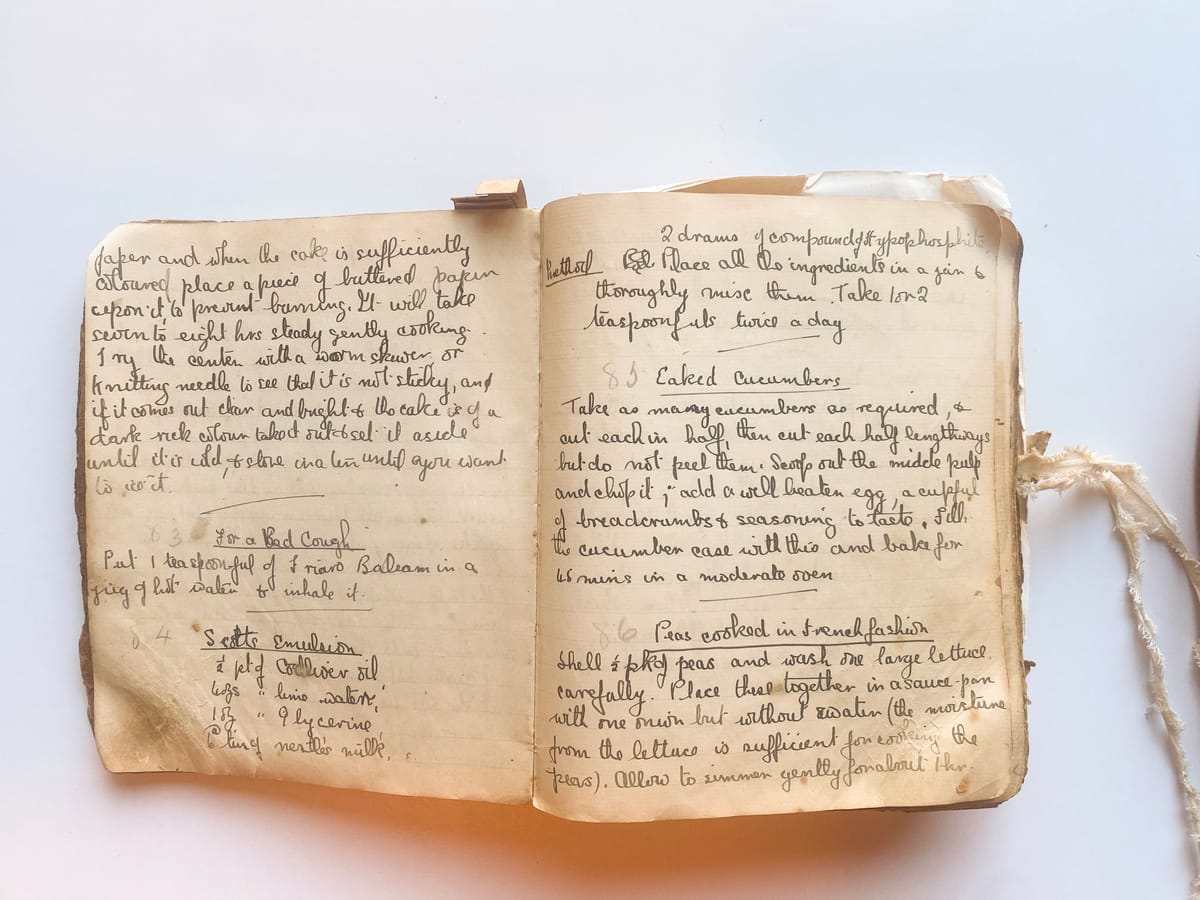 paper and when the cake is sufficiently
coloured place a piece of buttered paper
upon it, to prevent burning. It will take
seven to eight hrs steady gently cooking.
Try the center with a worm skewer, or
Knitting needle to see that it is not sticky, and
if it comes out clear and bright & the cake is of a
dark rich colour take it out & set it aside
until it is cold, & store in a tin until you want
to it.
83 For a Bad Cough
Put 1 teaspoonful of Friars Balsam in a
jug of hot water & inhale it.
84 Scotts Emulsion
½ pt of Codliver oil
4ozs " lime water,
1oz " Glycerine
tin of nestle's milk,
2 drams of compound of Hypophosphite
Method Place all the ingredients in a jar &
thoroughly mix them. Take 1 or 2
teaspoonfuls twice a day
85 Baked Cucumbers
Take as many cucumbers as required, &
cut each in half, then cut each half lengthways
but do not peel them. Scoop out the middle pulp
and chop it; add a well beaten egg, a cupful
of breadcrumbs & seasoning to taste. Fill
the cucumber case with this and bake for
45 mins in a moderate oven
86 Peas cooked in French fashion
Shell ½ pk of peas and wash one large lettuce
carefully. Place these together in a sauce-pan
with one onion but without water (the moisture
from the lettuce is sufficient for cooking the
peas). Allow to simmer gently for about 1 hr.